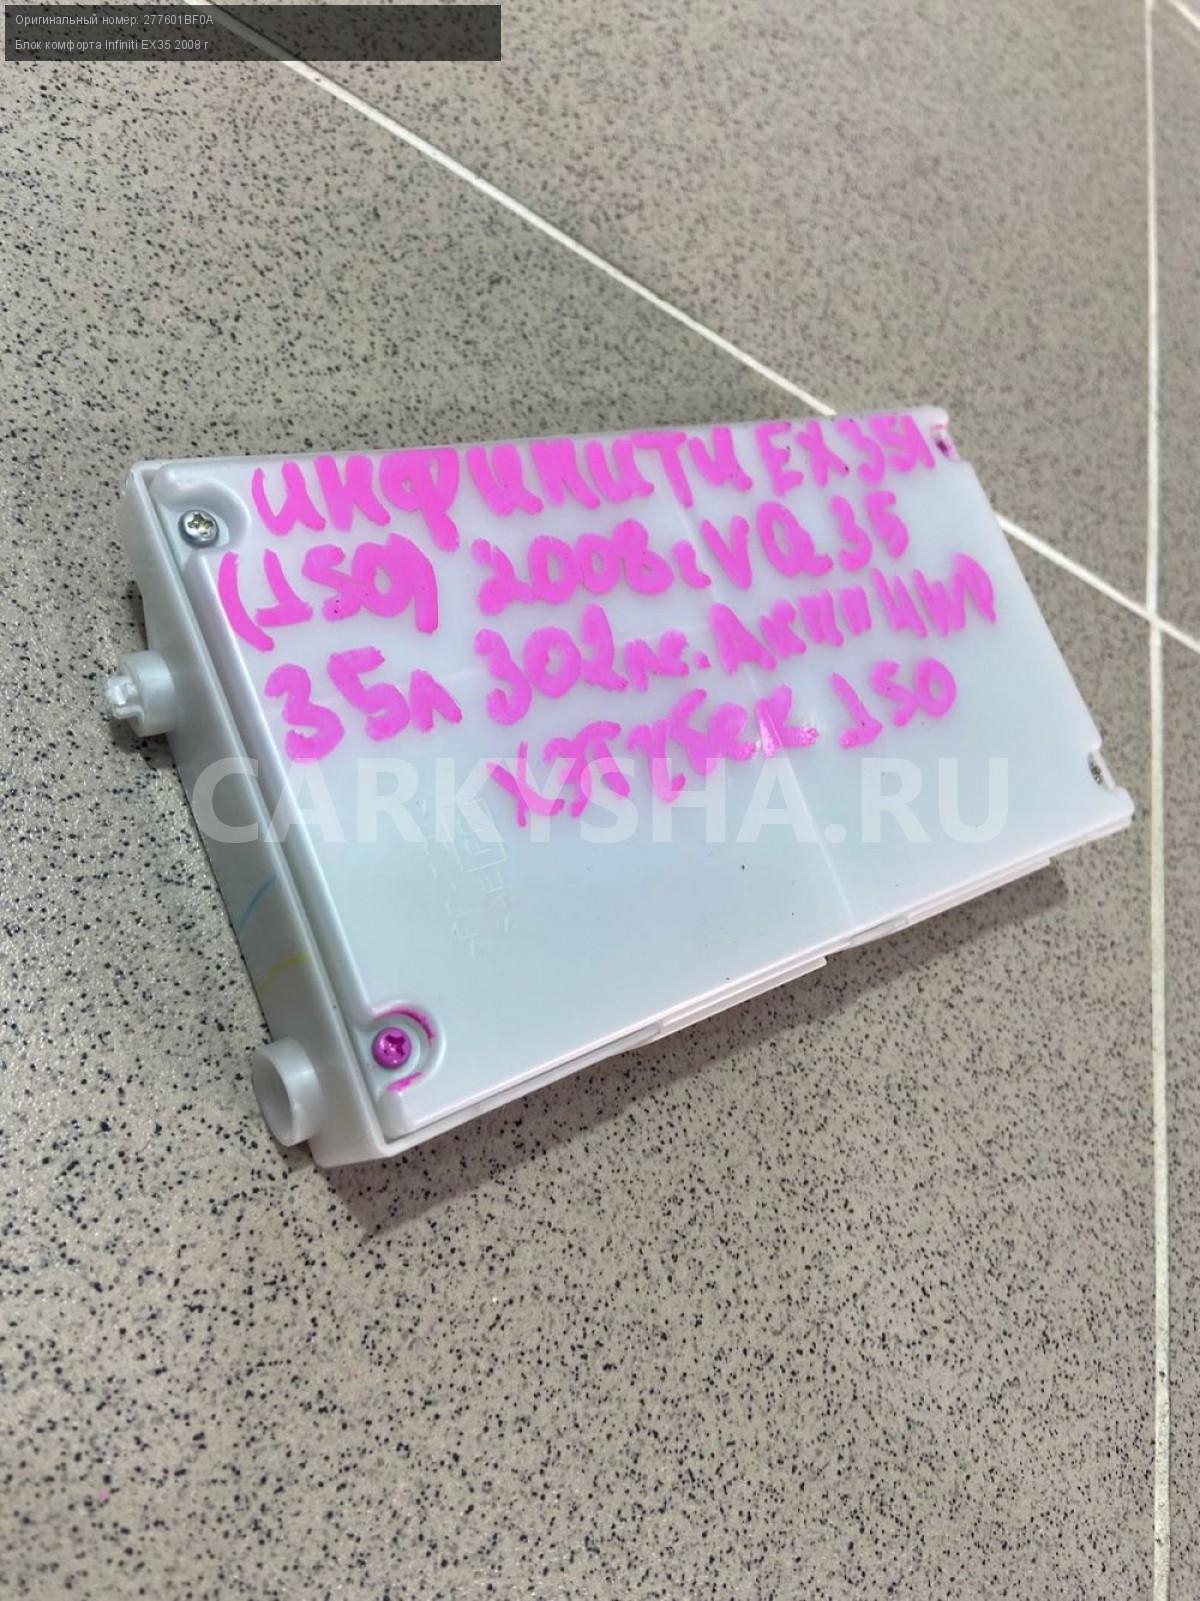 Оригинальный номер: 277601BF0A
Блок комфорта Infiniti EX35 2008 г
ИНФИНИТИ EX35I
(J50) 2008г VQ35
35л 302лс. Акпп
J50
CARKYSHA.RU